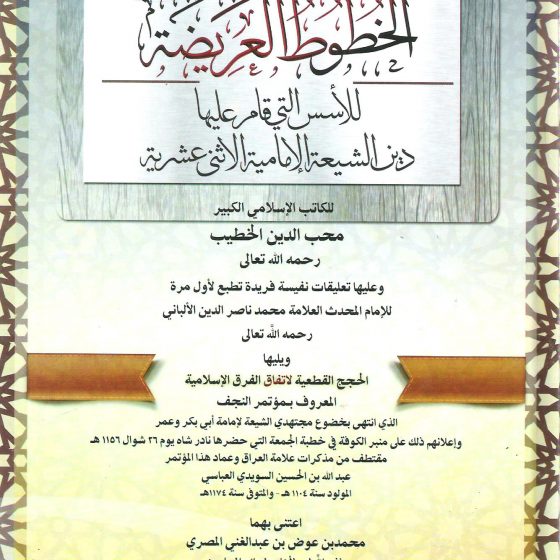 الخطوط العريضة
للأسس التي قام عليها
دين الشيعة الإمامية الاثنى عشرية
للكاتب الإسلامي الكبير
محب الدين الخطيب
رحمه الله تعالى
وعليها تعليقات نفيسة فريدة تطبع لأول مرة
للإمام المحدث العلامة محمد ناصر الدين الألباني
رحمه الله تعالى
ويليها
الحجج القطعية لاتفاق الفرق الإسلامية
المعروف بمؤتمر النجف
الذي انتهى بخضوع مجتهدي الشيعة لإمامة أبي بكر وعمر
وإعلانهم ذلك على منبر الكوفة في خطبة الجمعة التي حضرها نادر شاه يوم ٢٦ شوال ١١٥٦ هـ
مقتطف من مذكرات علامة العراق وعماد هذا المؤتمر
عبد الله بن الحسين السويدي العباسي
المولود سنة ١١٠٤ هـ - والمتوفى سنة ١١٧٤هـ
اعتنى بهما
محمدبن عوض بن عبدالغني المصري